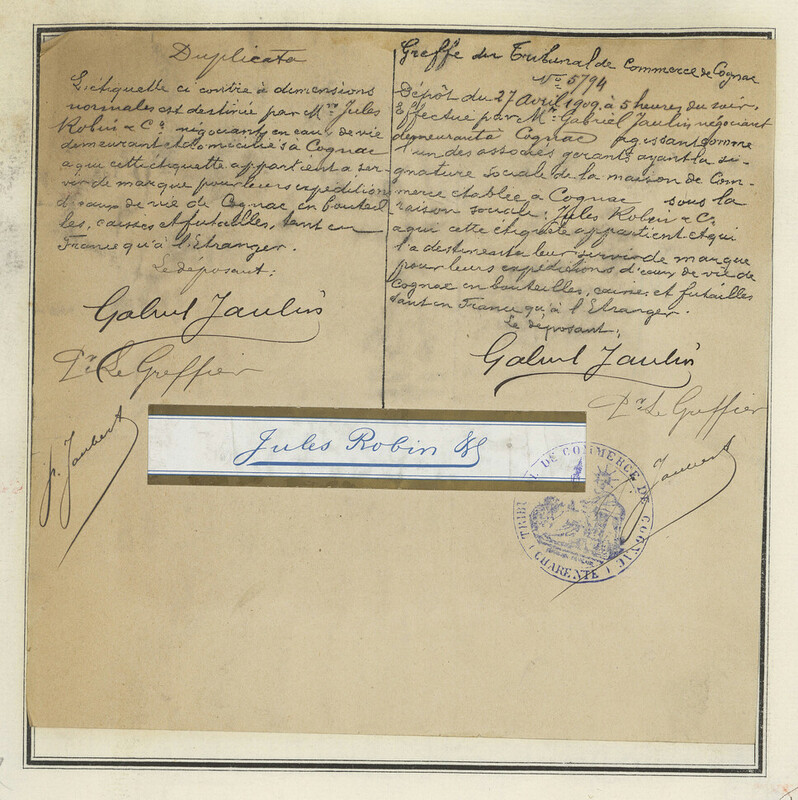 Duplicata
L'étiquette ci contre à dimensions
normales est destinée par Mrs Jules
Robin & Co négociants en eaux de vie
demeurant et domiciliés à Cognac
a qui cette étiquette appartient a ser-
vir de marque pour leurs expéditions
d'eaux de vie de Cognac en bouteil
les, caisses et futailles, tant en
France qu'à l'Etranger.
Le déposant:
Gabriel Jaulin
Pr Le Greffier
Jaubert
Greffe du Tribunal de Commerce de Cognac
No 5794
Dépôt du 27 Avril 1909, à 5 heures du soir.
Effectué par Mr Gabriel Jaulin, négociant
demeurant à Cognac agissant comme
l'un des associés gérants ayant la si-
gnature sociale de la maison de Com-
merce établie à Cognac sous la
raison sociale: Jules Robin & Co
a qui cette étiquette appartient et qui
l'a destinent a leur servir de marque
pour leurs expéditions d'eaux de vie de
Cognac en bouteilles, caisses et futailles
tant en France qu'à l'Etranger.
Le déposant:
Gabriel Jaulin
Pr Le Greffier
Jaubert
Jules Robin & Co
TRIBUNAL DE COMMERCE DE COGNAC
(CHARENTE)